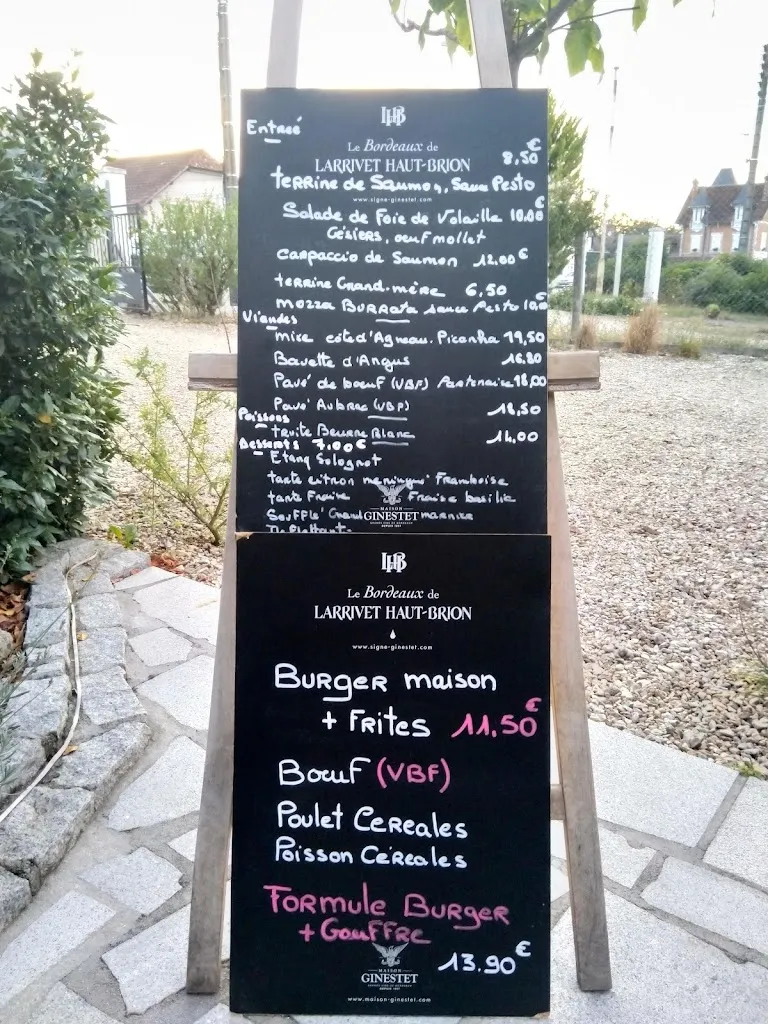 LHB
Entrée
Le Bordeaux de
LARRIVET HAUT-BRION
8,50€
terrine de Saumon, Sauce Pesto
www.signe-ginestet.com
Salade de Foie de Volaille 10,00€
Gésiers, oeuf mollet
carpaccio de Saumon 12.00€
terrine Grand-mère 6,50
mozza BURRata sauce Pesto
Viandes
d'Agneau. Picanha 19,50
Bavette d'Angus 16.80
Pavé de boeuf (VBF) 18,00
Pavé Aubrac (VBF) 18,50
Poissons
truite Beurre Blanc 14,00
Desserts 7.00€
Etang Solognot
tarte citron meringué Framboise
Fraise basilic
Soufflé Grand marnier
MAISON
GINESTET
LHB
Le Bordeaux de
LARRIVET HAUT-BRION
www.signe-ginestet.com
BURGER maison
+ FRITES 11,50€
Boeuf (VBF)
Poulet CeReales
Poisson CéReales
FORMULE BURGER
+ GauFFRe
13.90€
MAISON
GINESTET
www.maison-ginestet.com